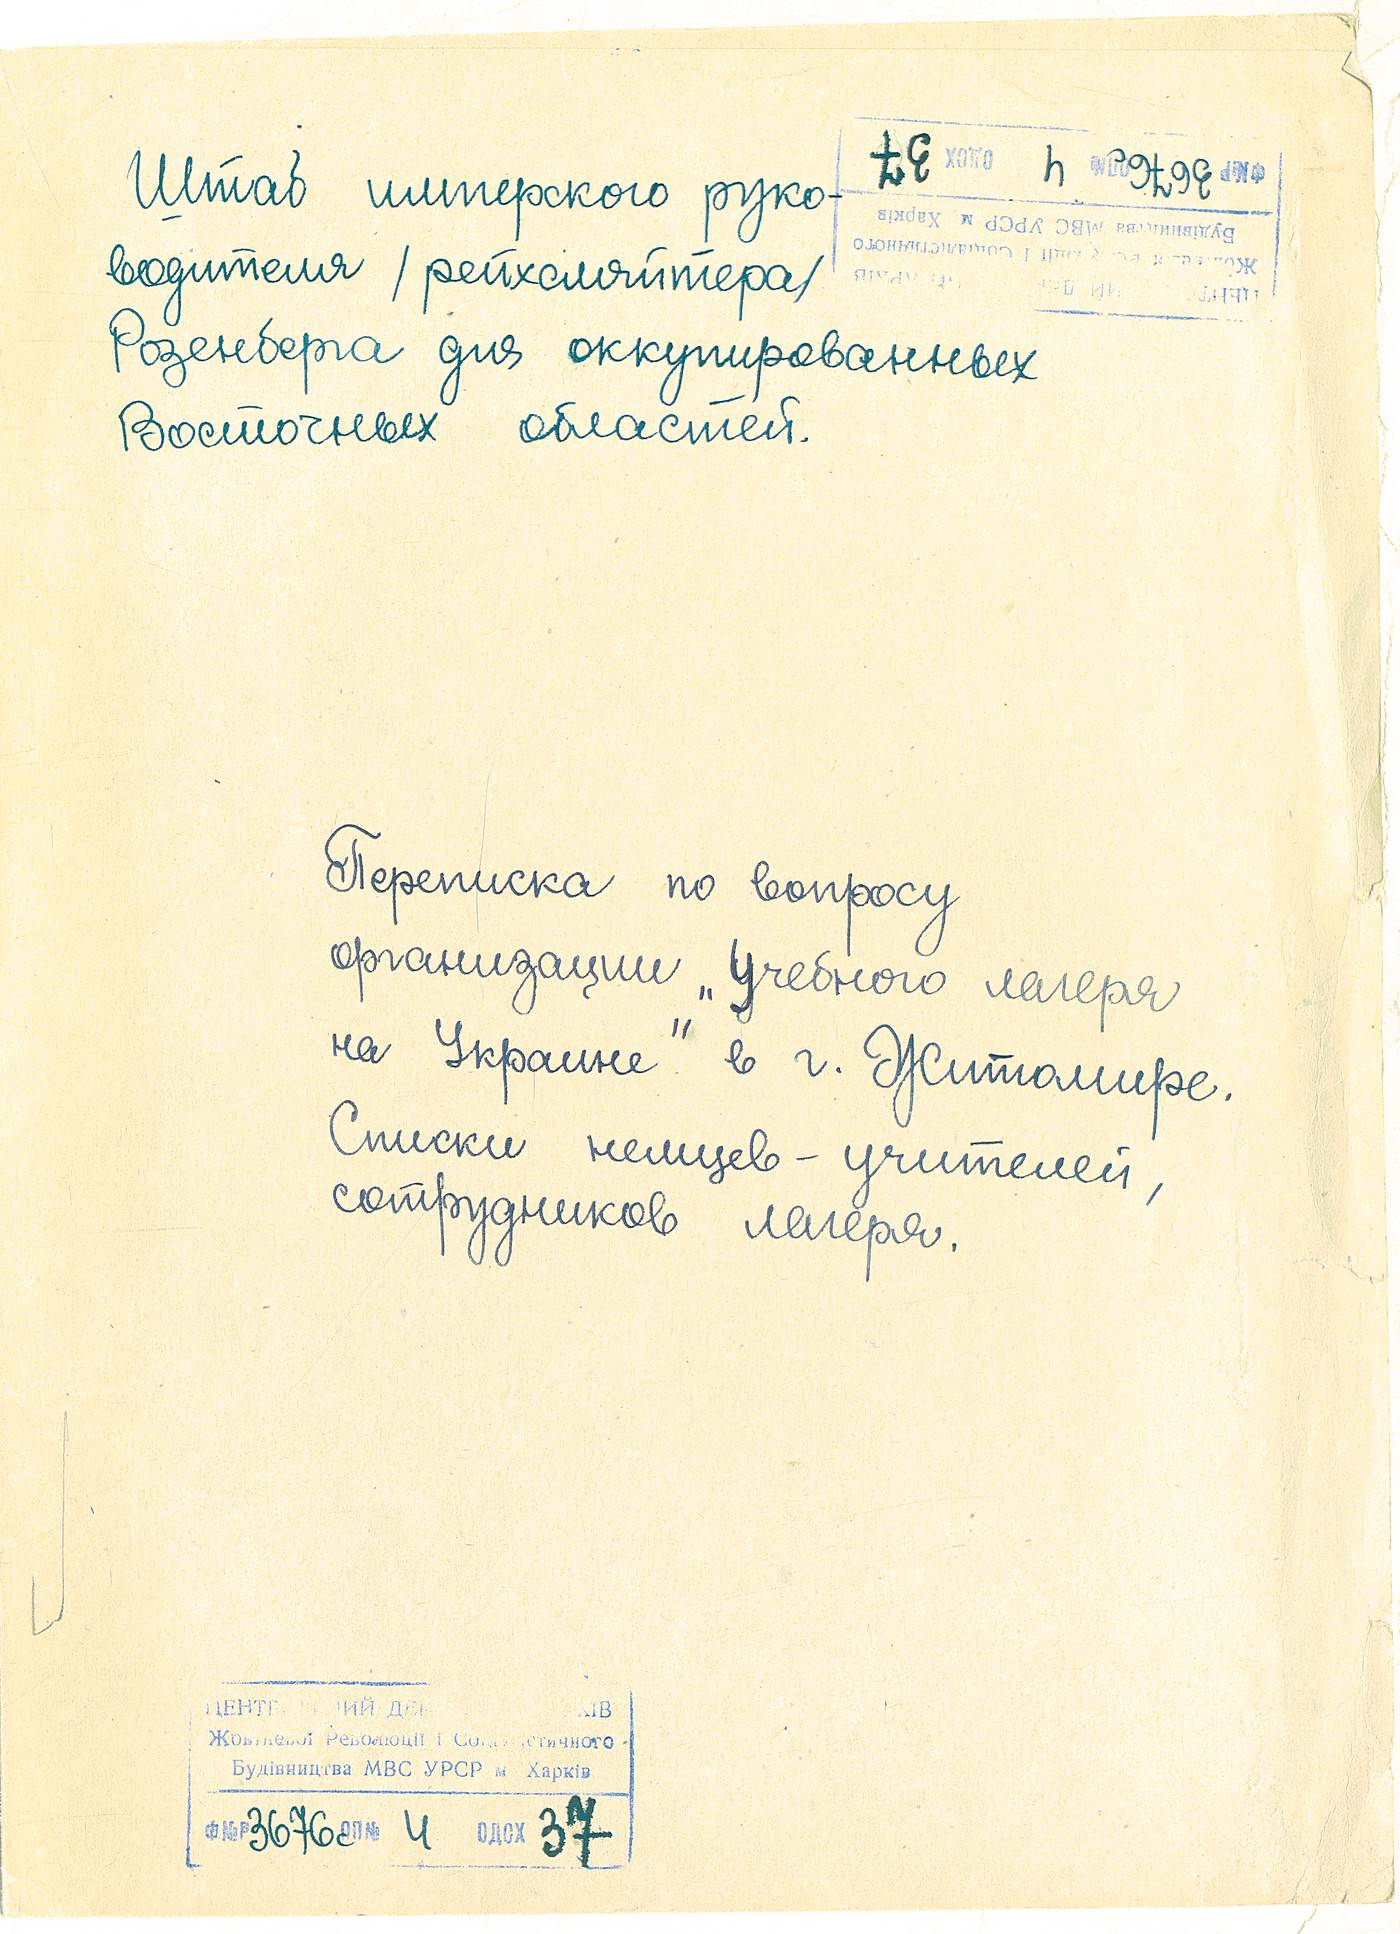 Штаб имперского руко-
водителя /рейхсляйтера/
Розенберга для оккупированных
Восточных областей.
Ф№Р 3676с ОП№ 4 ОДСХ 37
Будівництва МВС УРСР м Харків
Переписка по вопросу
организации „Учебного лагеря
на Украине" в г. Житомире.
Списки немцев - учителей,
сотрудников лагеря.
Жовтневої Революції і Соціалістичного
Будівництва МВС УРСР м Харків
Ф№Р 3676с ОП№ 4 ОДСХ 37